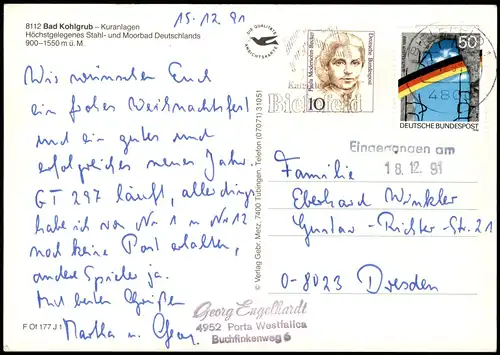 8112 Bad Kohlgrub – Kuranlagen
Höchstgelegenes Stahl- und Moorbad Deutschlands
900–1550 m ü. M.
15.12.91
DIE QUALITÄTS
ANSICHTSKARTE
Paula Modersohn-Becker
Deutsche Bundespost
10
Bielefeld
50
480
DEUTSCHE BUNDESPOST
Eingegangen am
18. 12. 91
Wir wünschen Euch
ein frohes Weihnachtsfest
und ein gutes und
erfolgreiches neues Jahr.
GT 297 läuft, allerdings
habe ich von Nr 1 u Nr 12
noch keine Post erhalten,
andere Spieler ja.
Mit besten Grüßen
Martha u. Georg
F Of 177 J 1
© Verlag Gebr. Metz, 7400 Tübingen, Telefon (07071) 31051
Familie
Eberhard Winkler
Gustav-Richter-Str. 21
O-8023 Dresden
Georg Engelhardt
4952 Porta Westfalica
Buchfinkenweg 6